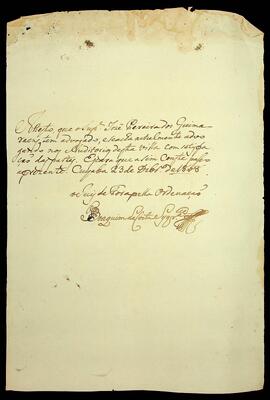 Atesto, que o Supe. José Pereira dos Guima-
raes tem advogado, e está actualmente advo-
gando nos Auditorios desta Villa com satisfa-
ção das partes. E para que assim conste passo
a prezente. Cuyabá 23 de Febro. de 1808
o Juiz de Fora pela Ordenação
Joaquim da Costa